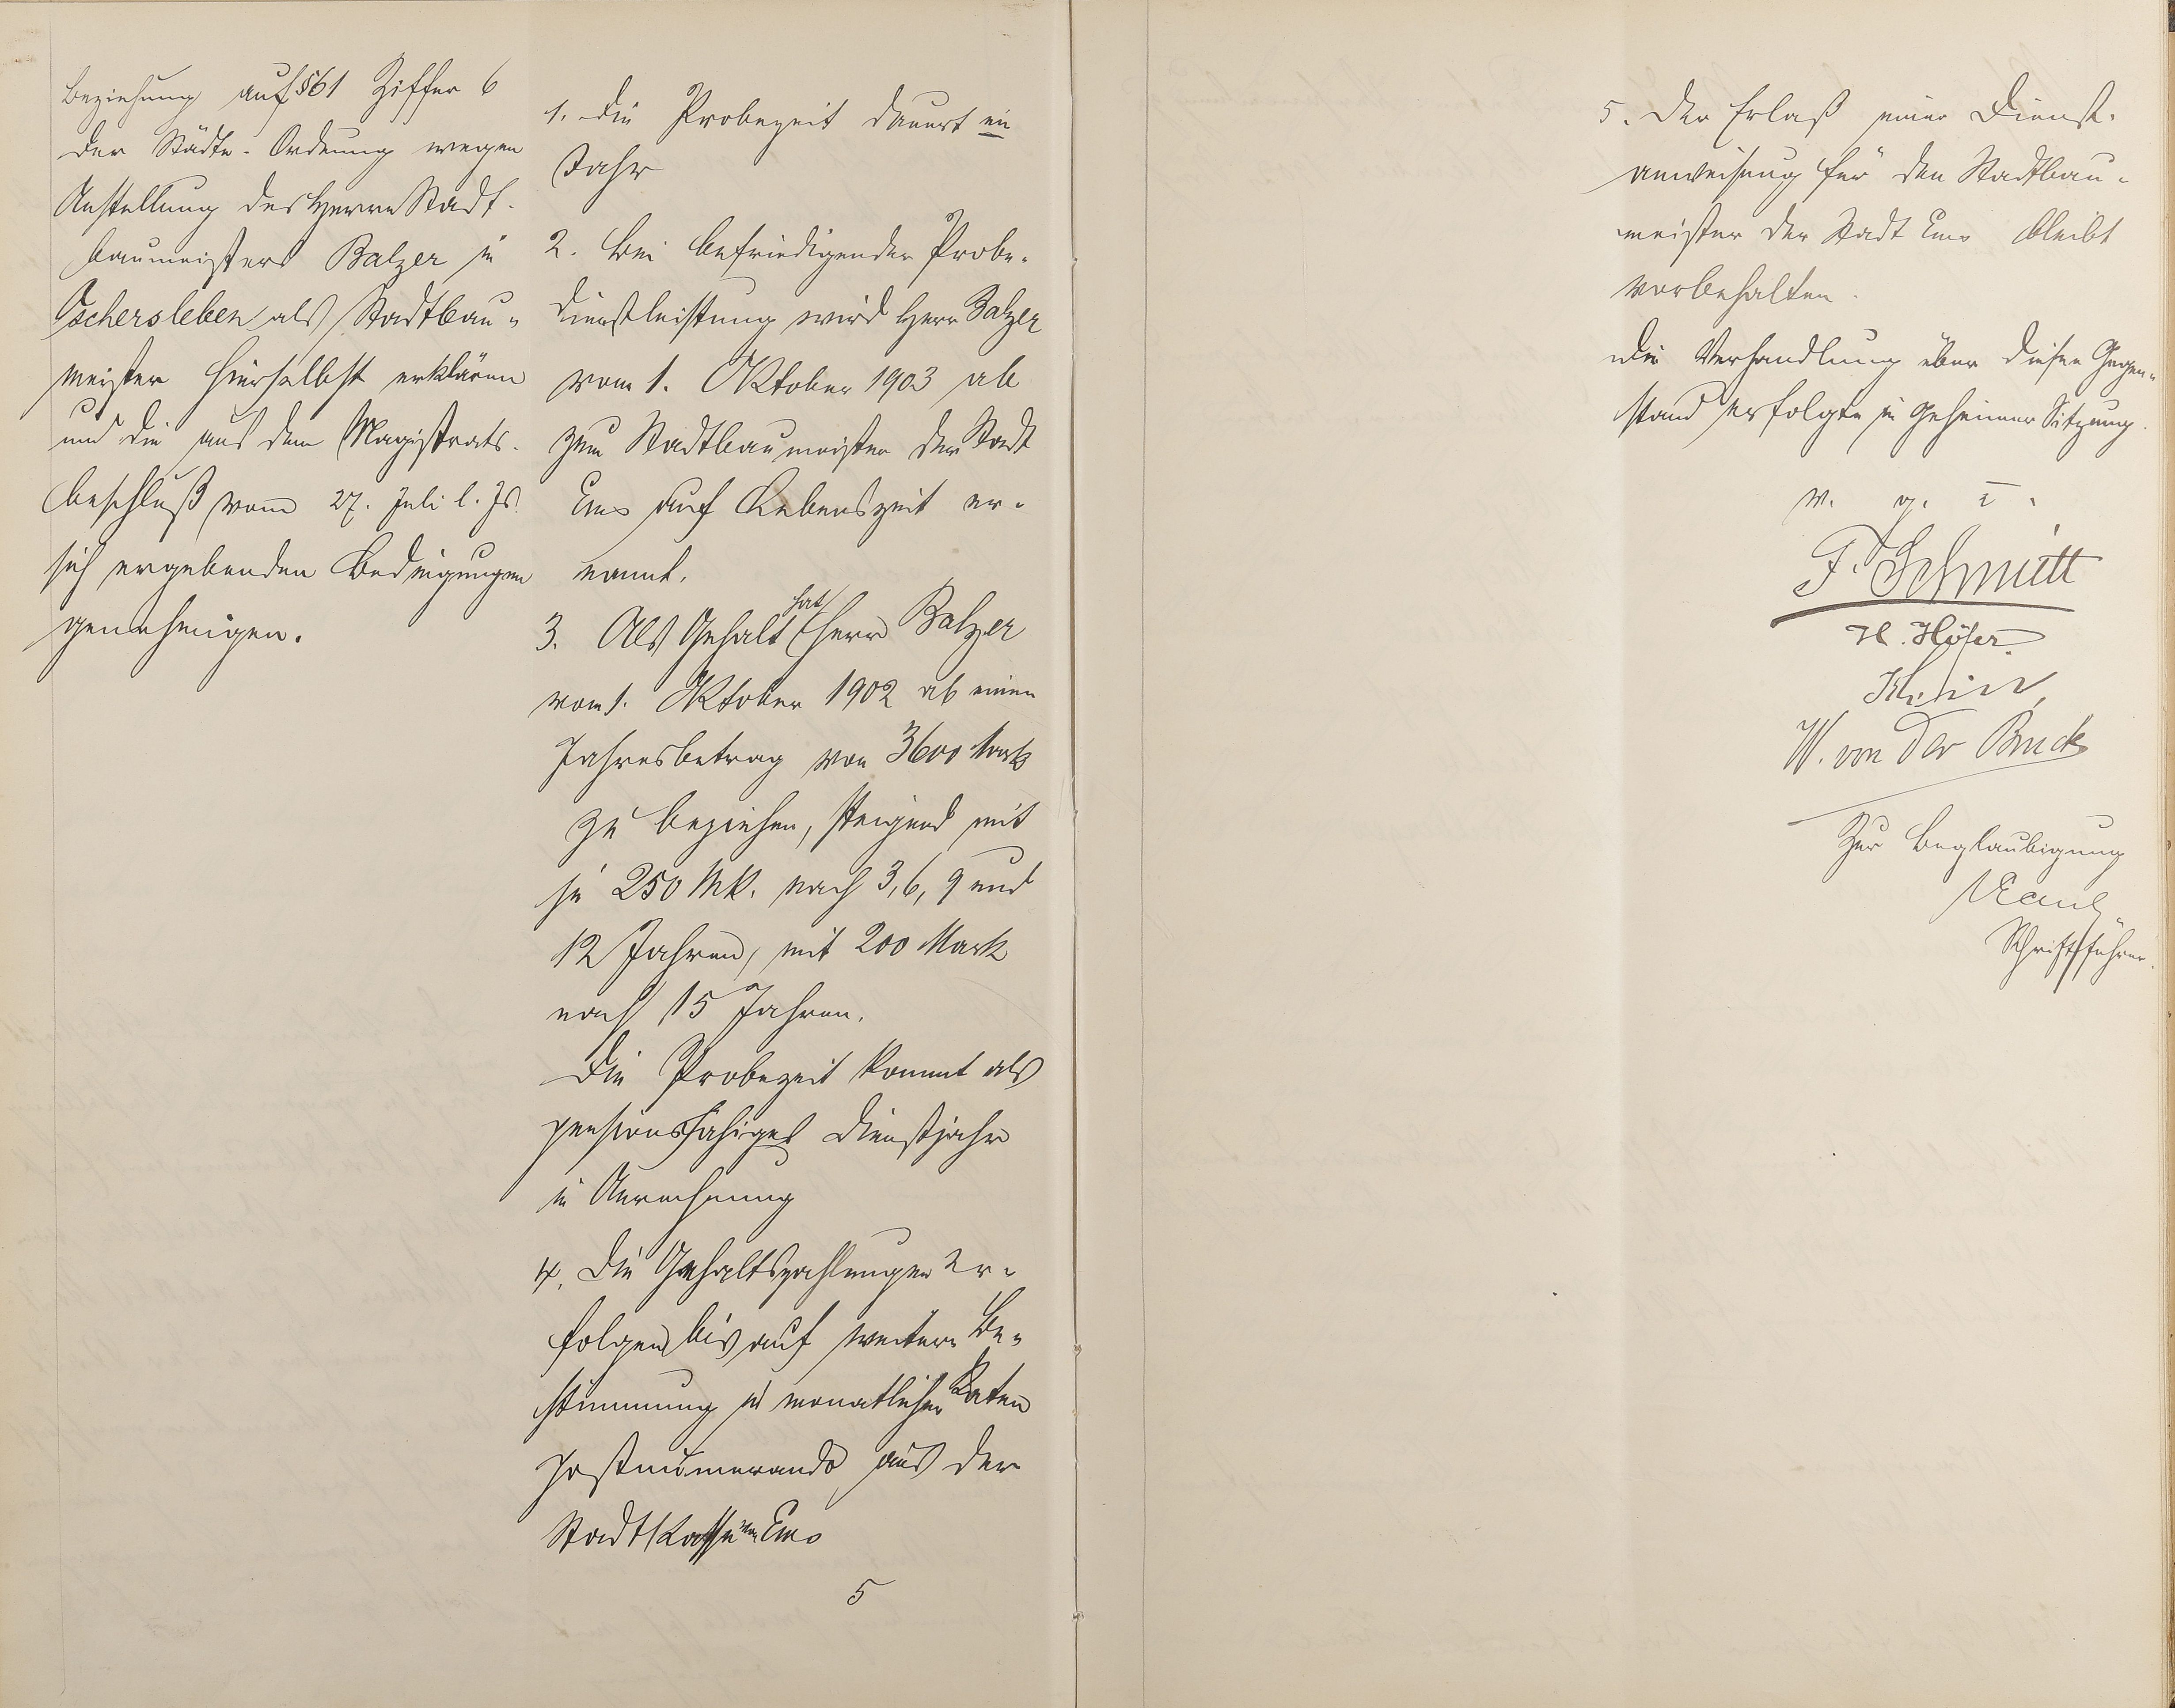 Beziehung auf §61 Ziffer 6
der Städte-Ordnung wegen
Anstellung des Herrn Stadt-
baumeisters Balzer in
Oschersleben als Stadtbau-
meister hierselbst erklären
und die aus dem Magistrats-
beschluß vom 27. Juli l. Js.
sich ergebenden Bedingungen
genehmigen.
1. Die Probezeit dauert ein
Jahr
2. Bei befriedigender Probe-
dienstleistung wird Herr Balzer
vom 1. Oktober 1903 ab
zum Stadtbaumeister der Stadt
Ems auf Lebenszeit er-
nannt.
3. Als Gehalt hat Herr Balzer
vom 1. Oktober 1902 ab einen
Jahresbetrag von 3600 Mark
zu beziehen, steigend mit
je 250 Mk. nach 3, 6, 9 und
12 Jahren, mit 200 Mark
nach 15 Jahren.
Die Probezeit kommt als
pensionsfähiges Dienstjahr
in Anrechnung
4. Die Gehaltszahlungen er-
folgen bis auf weitere Be-
stimmung in monatlichen Raten
postnumerando aus der
Stadtkasse von Ems
5
5. Der Erlaß einer Dienst-
anweisung für den Stadtbau-
meister der Stadt Ems bleibt
vorbehalten.
Die Verhandlung über diesen Gegen-
stand erfolgte in geheimer Sitzung.
v. g. u.
F. Schmitt
H. Höfer
W. von der Brück
Zur Beglaubigung
Schriftführer.